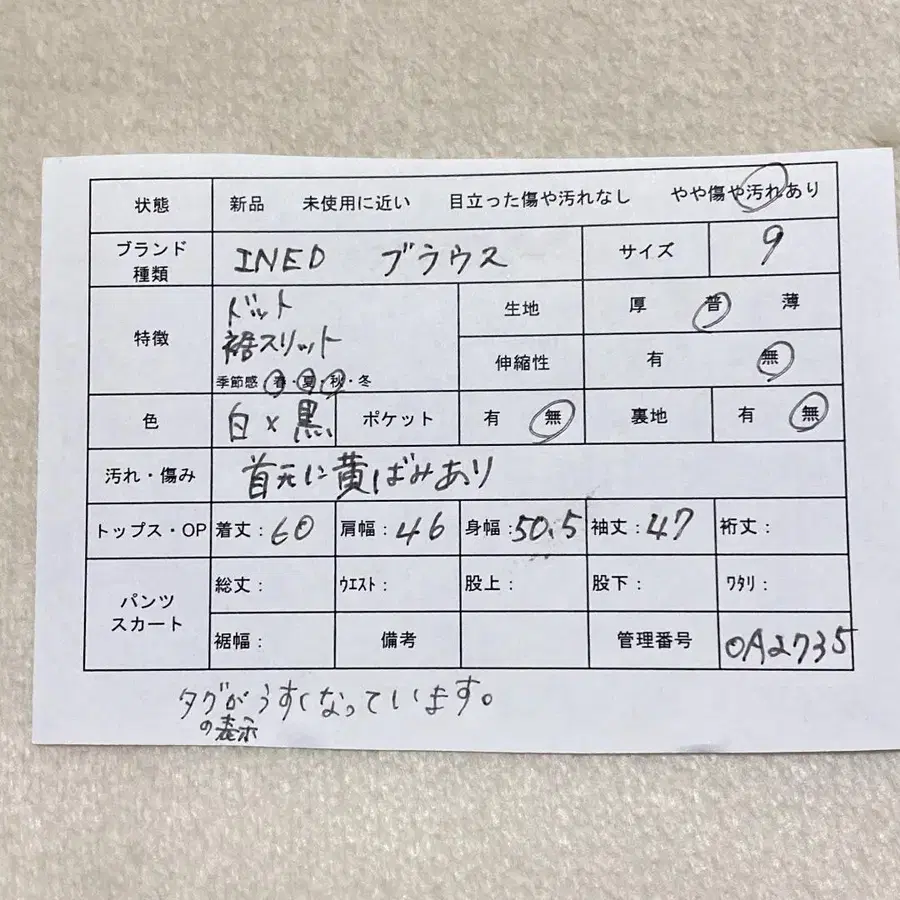 状態 新品 未使用に近い 目立った傷や汚れなし やや傷や汚れあり
ブランド種類 INED ブラウス サイズ 9
特徴 ドット 生地 厚 普 薄
裾スリット 伸縮性 有 無
季節感 春・夏・秋・冬
色 白×黒 ポケット 有 無 裏地 有 無
汚れ・傷み 首元に黄ばみあり
トップス・OP 着丈:60 肩幅:46 身幅:50.5 袖丈:47 裄丈:
パンツ スカート 総丈: ウエスト: 股上: 股下: ワタリ:
裾幅: 備考 管理番号 OA2735
タグがうすくなっています。
の表示